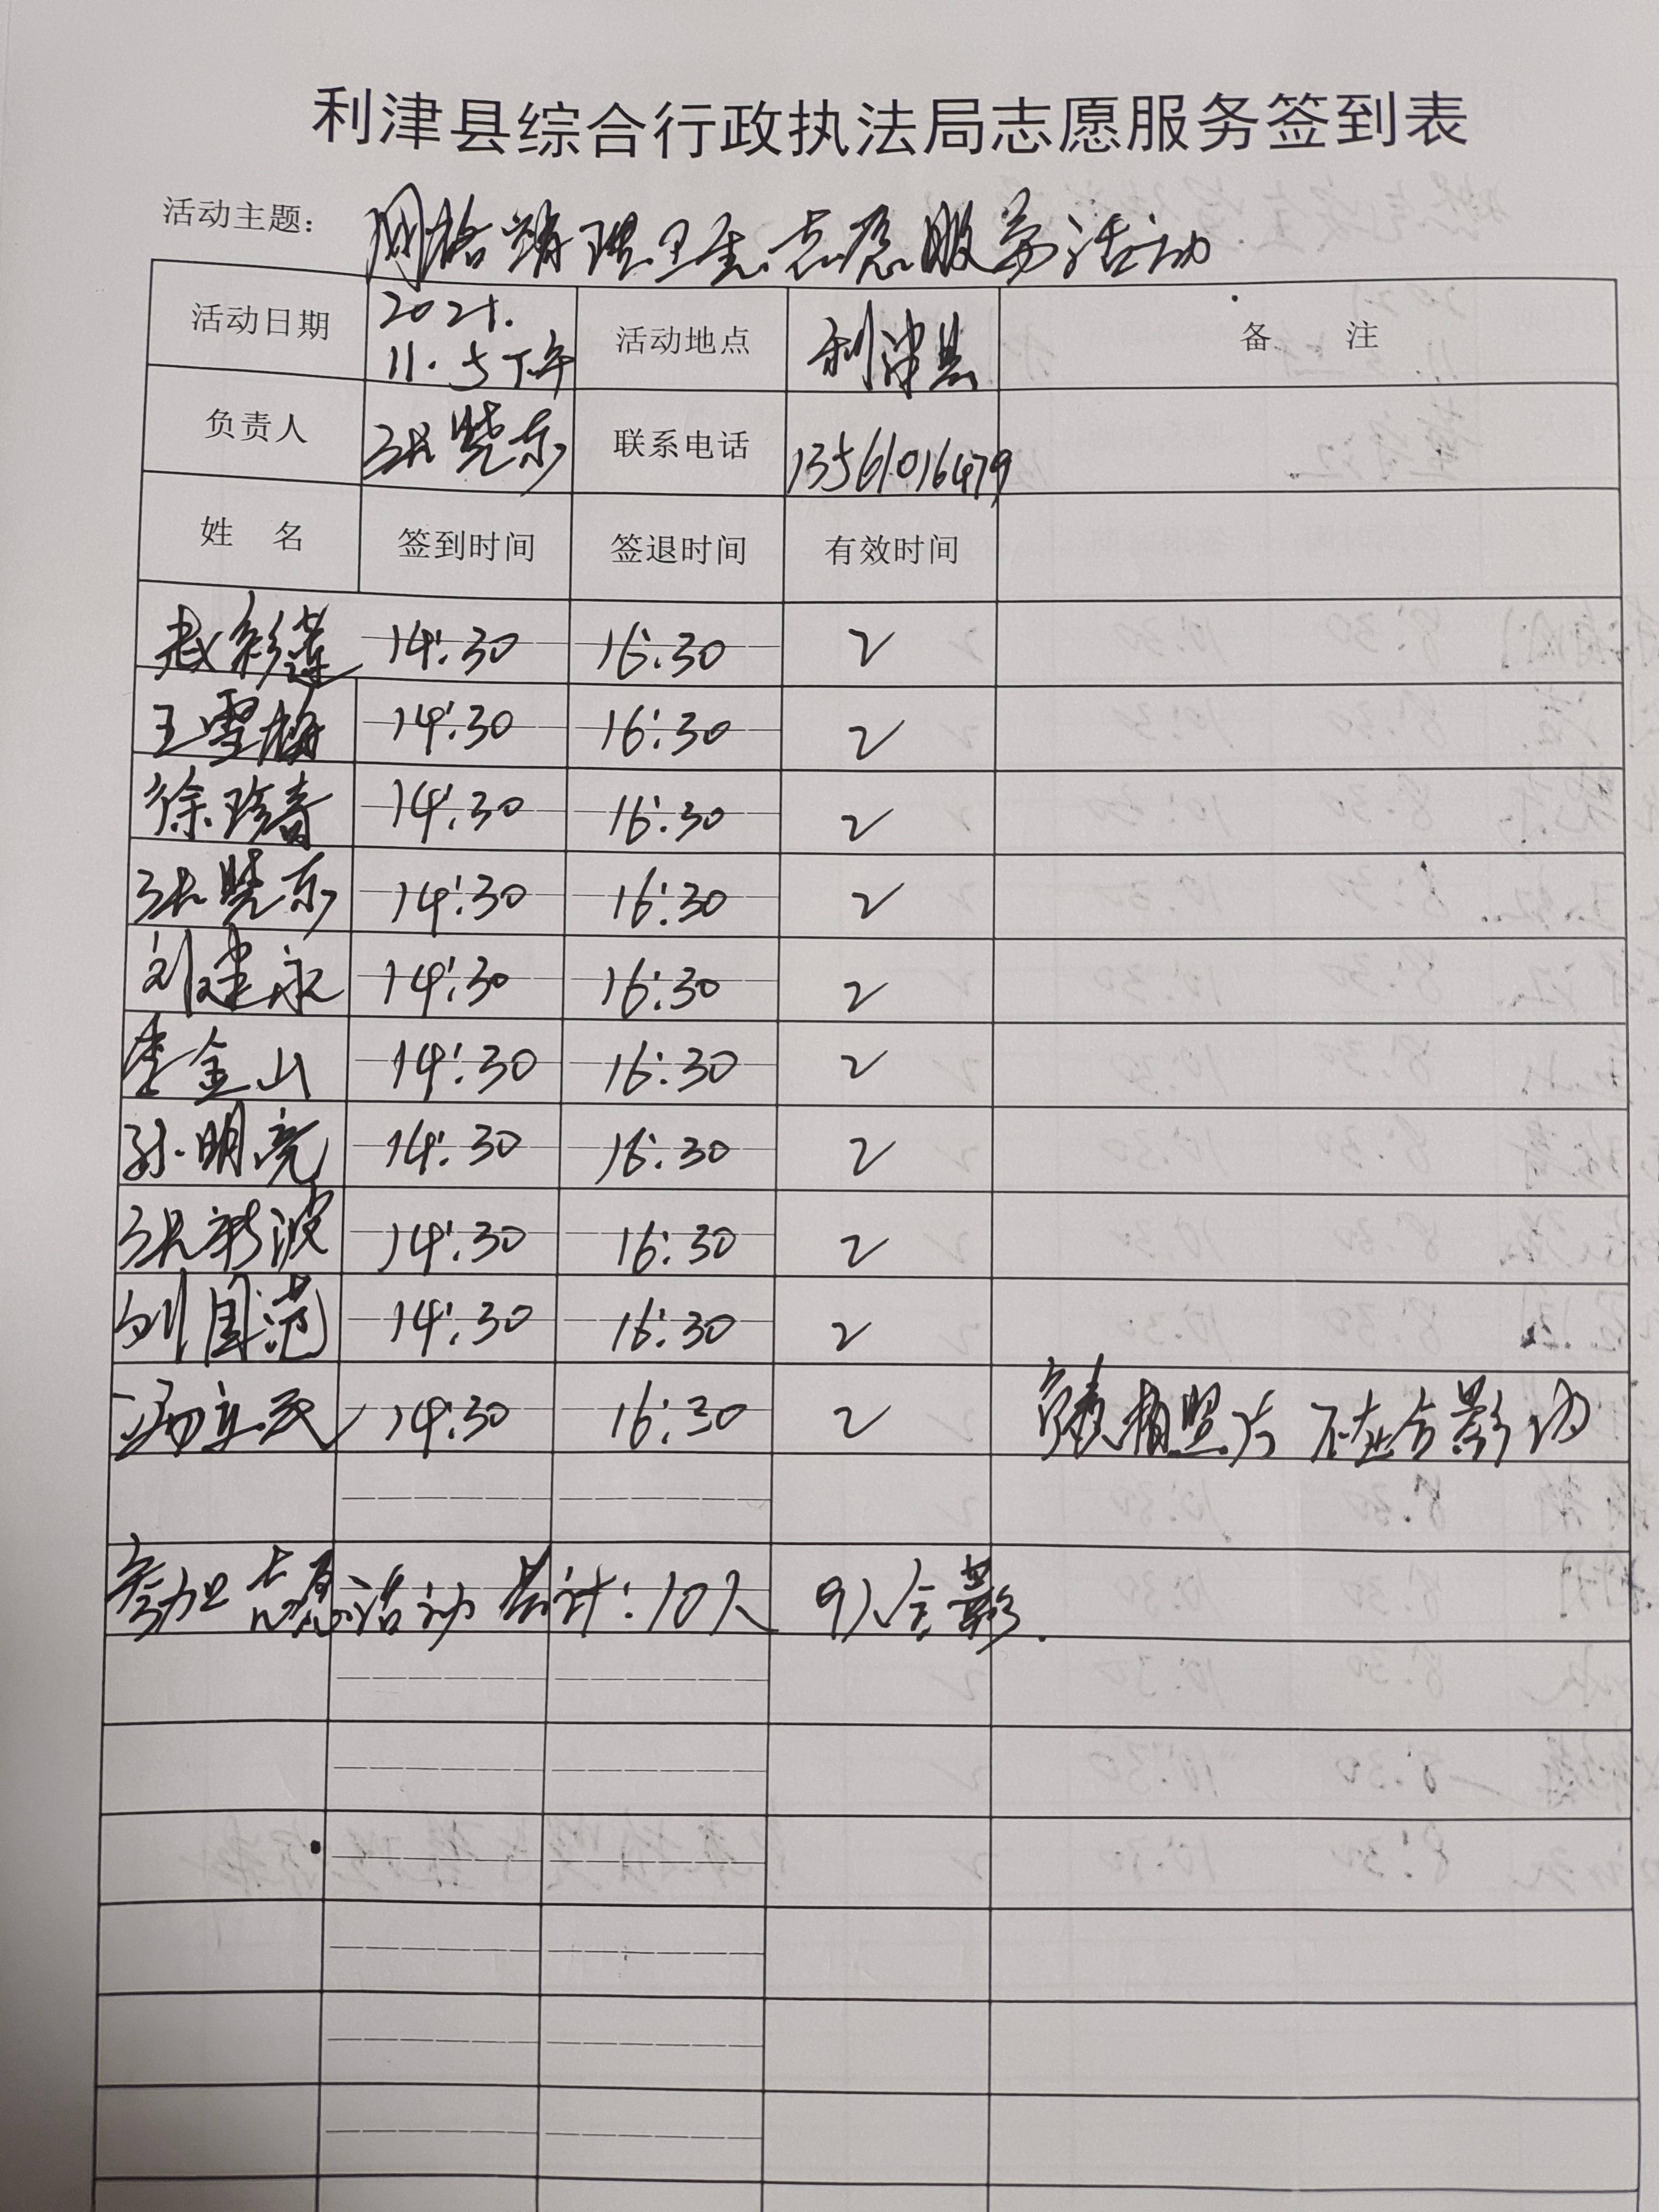 利津县综合行政执法局志愿服务签到表
活动主题: 网格清理卫生志愿服务活动
活动日期 2021.11.5下午 活动地点 利津县 备 注
负责人 张晓东 联系电话 13561016479
姓 名 签到时间 签退时间 有效时间
赵彩莲 14:30 16:30 2
王雪梅 14:30 16:30 2
徐珍 14:30 16:30 2
张晓东 14:30 16:30 2
刘建永 14:30 16:30 2
李金山 14:30 16:30 2
孙明亮 14:30 16:30 2
张新波 14:30 16:30 2
刘国 14:30 16:30 2
冯立民 14:30 16:30 2 负责拍照片 不在合影内
参加志愿活动共计:10人 9人合影.